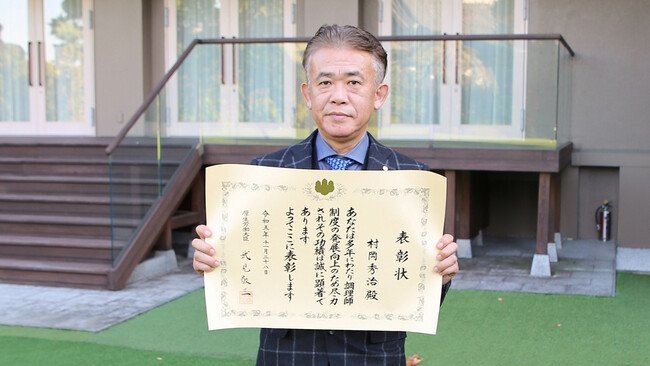 表彰状
村岡秀治 殿
あなたは多年にわたり調理師
制度の発展向上のため尽力
されその功績は誠に顕著で
あります
よってここに表彰します
令和五年十一月二十八日
厚生労働大臣 武見敬三